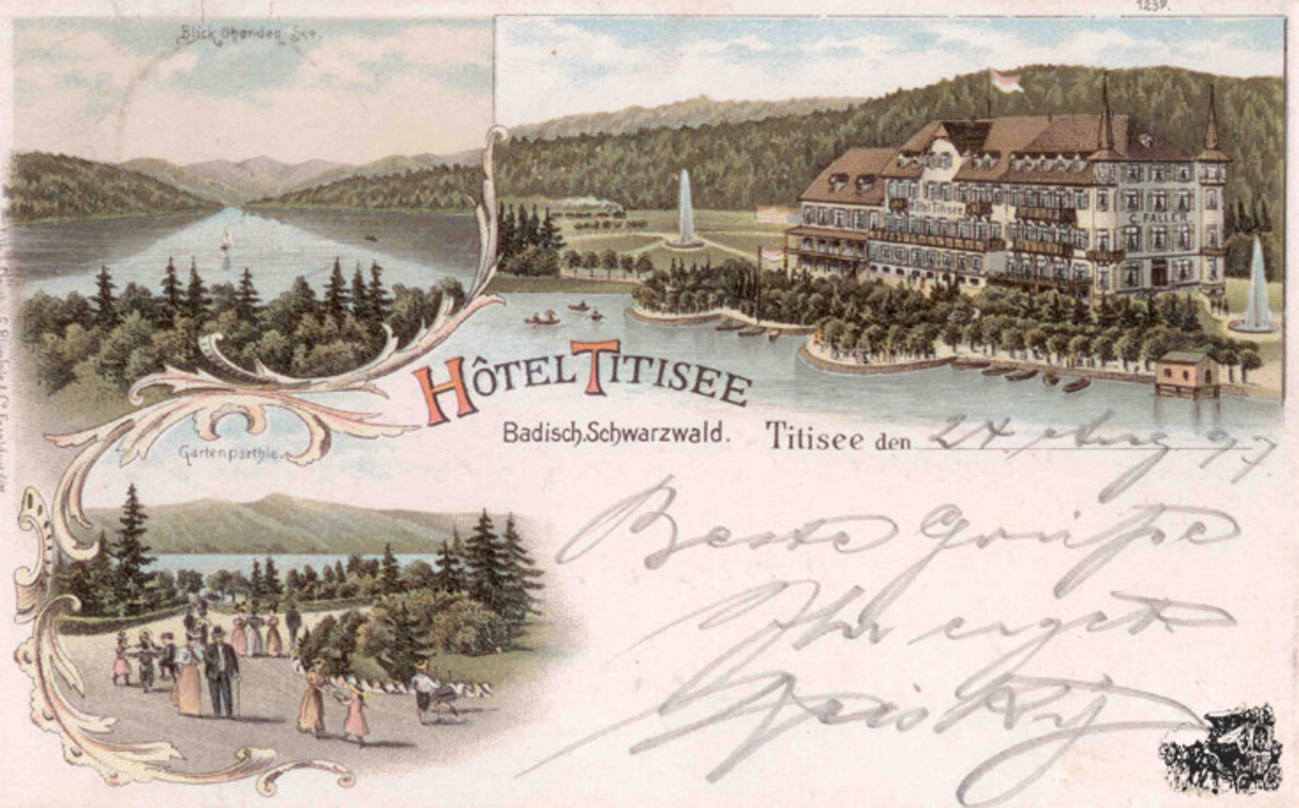 1239.
Blick über den See.
Hotel Titisee
C. FALLER
HÔTEL TITISEE
Badisch. Schwarzwald.
Titisee den 24. Aug 97
Gartenparthie.
Beste Grüße
Ihr erget.